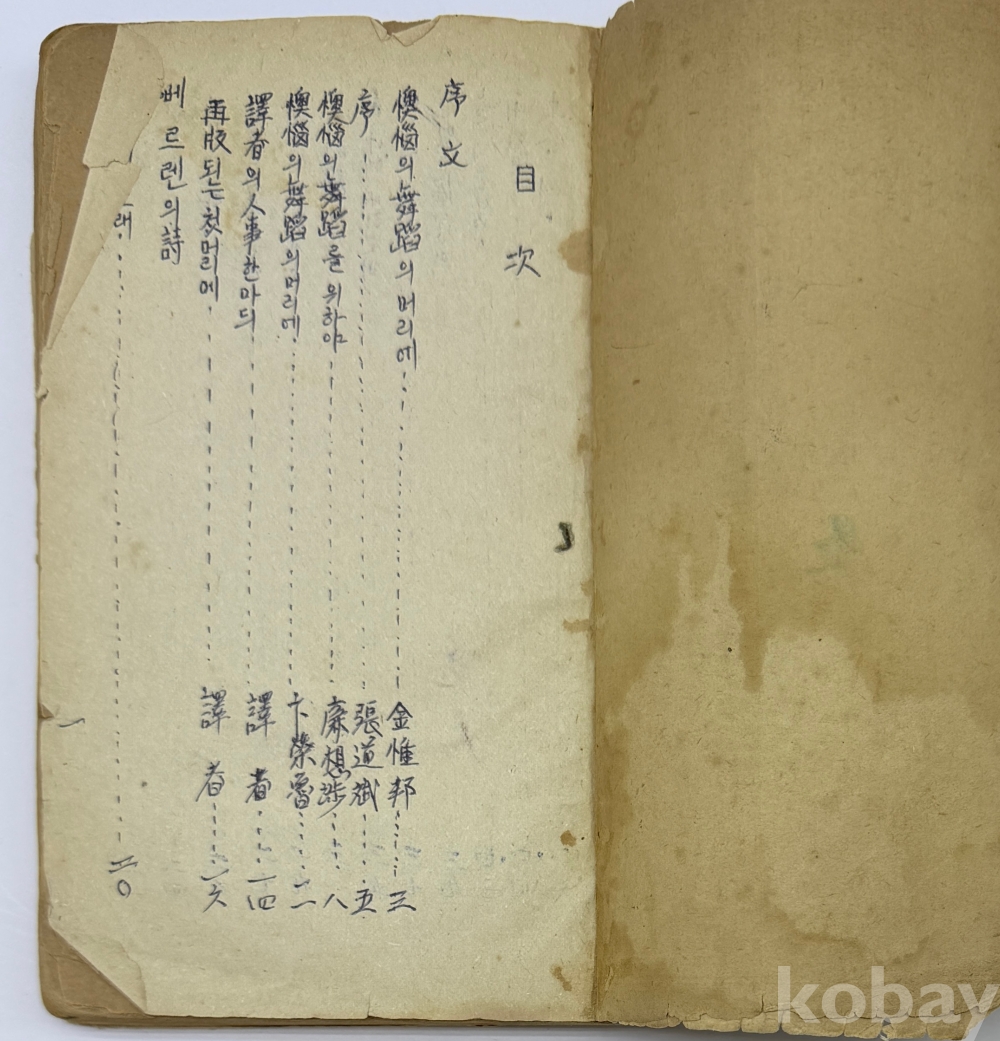 目次
序文
懊惱의舞蹈의머리에 金惟邦 三
序 張道斌 五
懊惱의舞蹈를위하야 廉想涉 八
懊惱의舞蹈의머리에 卞榮魯
譯者의人事한마듸 譯者 一四
再版되는첫머리에 譯者 一六
베르렌의詩
래 二〇
kobay